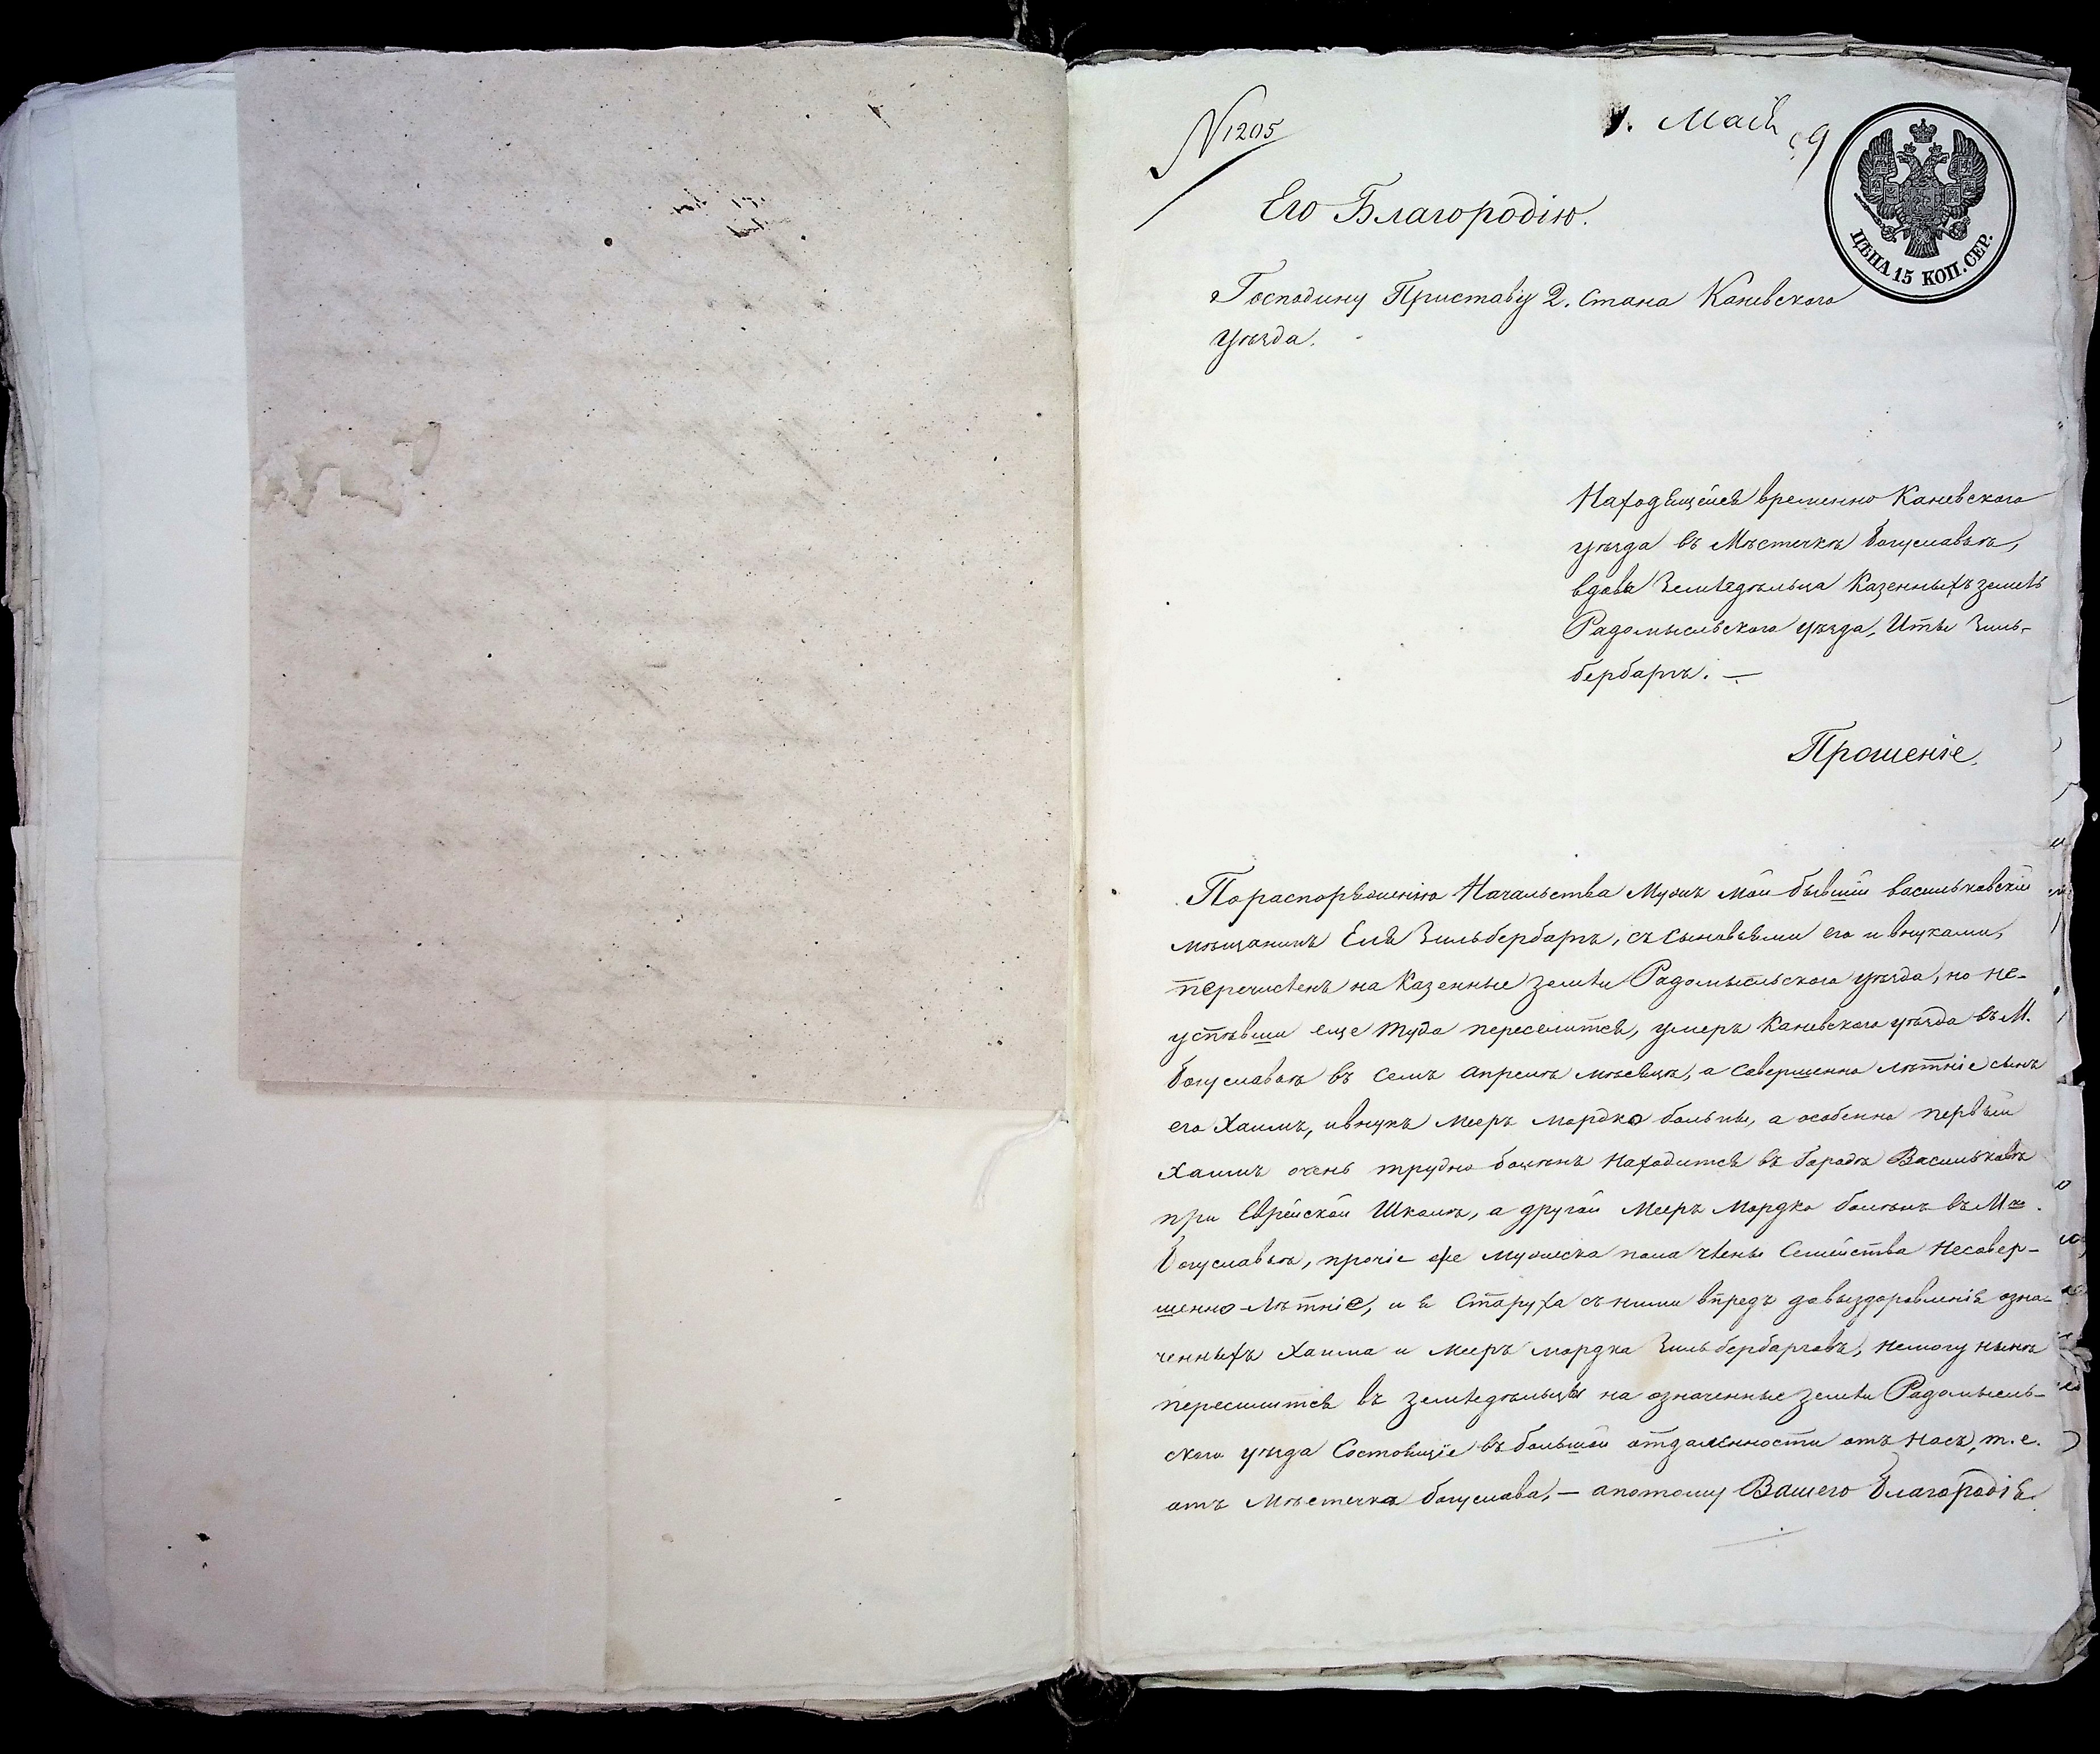 N 1205
1. Маія
59
ЦѢНА 15 КОП. СЕР.
Его Благородію.
Господину Приставу 2. Стана Каневского
уѣзда.
Находящейся временно Каневского
уѣзда въ Мѣстечкѣ Богуславѣ,
вдовы Земледѣльца Казенныхъ земель
Радомысльского уѣзда, Иты Зиль-
бербаргъ. —
Прошеніе.
По распоряженію Начальства Мужъ мой бывшій васильковскій
мѣщанинъ Еля Зильбербаргъ, съ сыновьями его и внуками,
перечисленъ на Казенные земли Радомысльского уѣзда, но не-
успѣвши еще туда переселится, умеръ Каневского уѣзда въ М.
Богуславѣ въ семъ апрелѣ мѣсяцѣ, а совершенно лѣтніе сынъ
его Хаимъ, и внукъ Мееръ Мордко больны, а особенно первый
Хаимъ очень трудно болѣнъ находится въ Городѣ Васильковѣ
при Еврейской Школѣ, а другой Мееръ Мордко болѣнъ въ Мкѣ.
Богуславѣ, прочіе же мужеска пола члены Семейства Несовер-
шенно-лѣтніе, и я Старуха съ ними впредь до выздоровленія озна-
ченныхъ Хаима и Мееръ Мордка Зильбербарговъ, немогу нынѣ
переселится въ земледѣльцы на означенные земли Радомысль-
ского уѣзда Состоящіе въ большой отдаленности отъ насъ, т. е.
отъ Мѣстечка Богуслава, — а потому Вашего Благородія